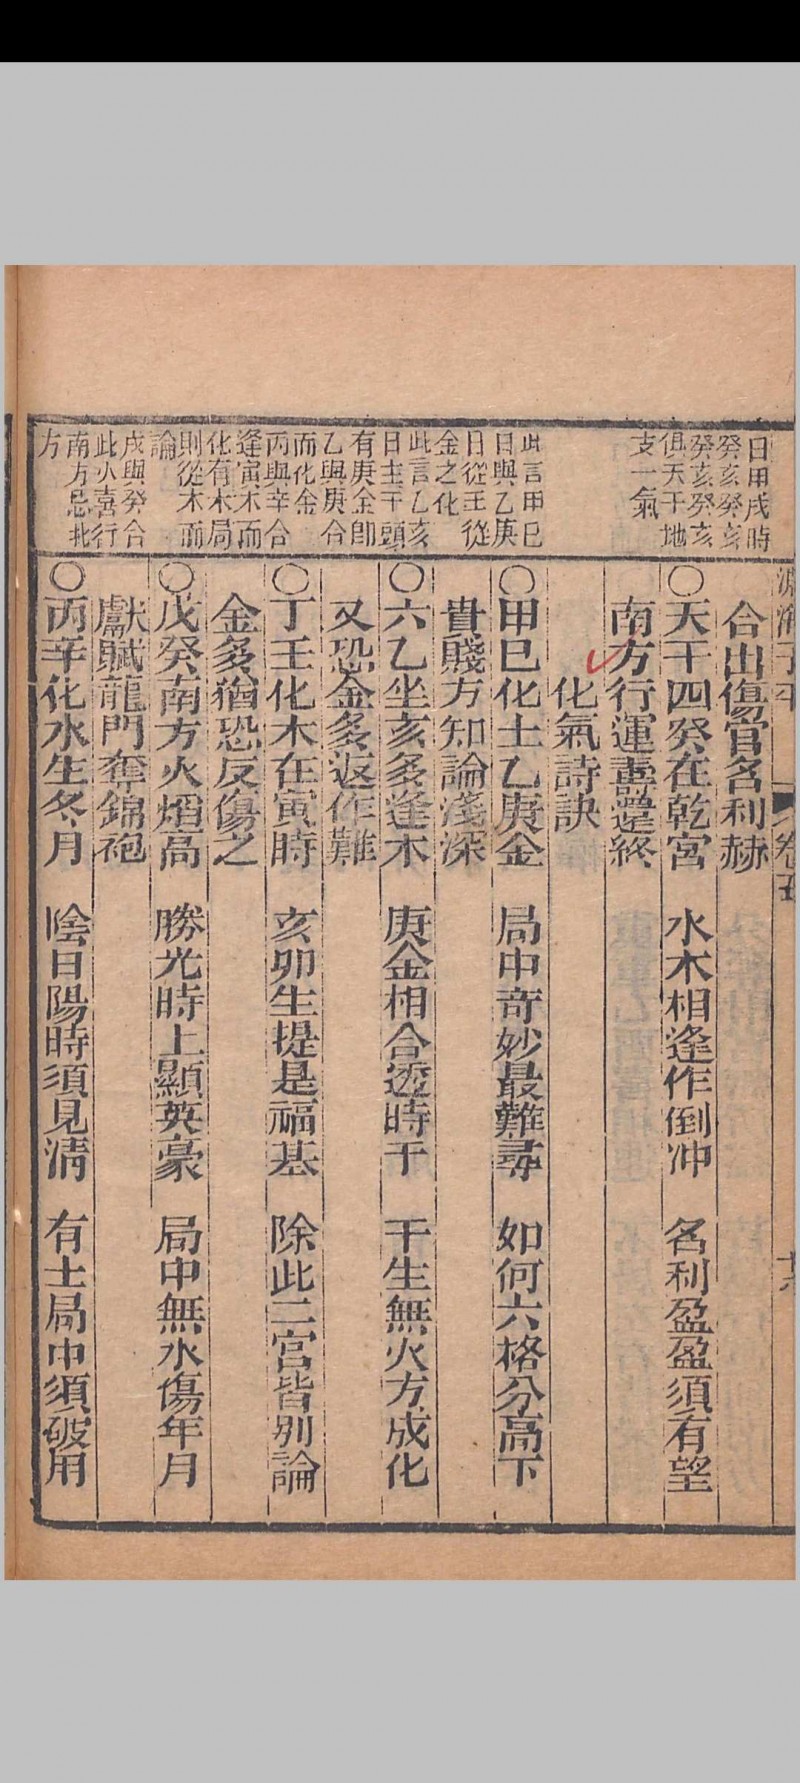 淵海子平
卷五
十六
日甲戌時
癸亥癸亥
癸亥癸亥
俱天干地
支一氣
此言甲巳
日與乙庚
日從王從
金之化
此言乙亥
日主干頭
有庚金卽
乙與庚合
而化金
丙與辛合
逢寅木而
化有木局
則從木而
論
戊與癸合
此火喜行
南方忌北
方
合出傷官名利赫
○天干四癸在乾宮 水木相逢作倒冲 名利盈盈須有望
南方行運壽遷終
化氣詩訣
○甲巳化土乙庚金 局中奇妙最難尋 如何六格分高下
貴賤方知論淺深
○六乙坐亥多逢木 庚金相合透時干 干生無火方成化
又恐金多返作難
○丁壬化木在寅時 亥卯生提是福基 除此二宮皆別論
金多猶恐反傷之
○戊癸南方火熖高 勝光時上顯英豪 局中無水傷年月
獻賦龍門奪錦袍
○丙辛化水生冬月 陰日陽時須見清 有土局中須破用